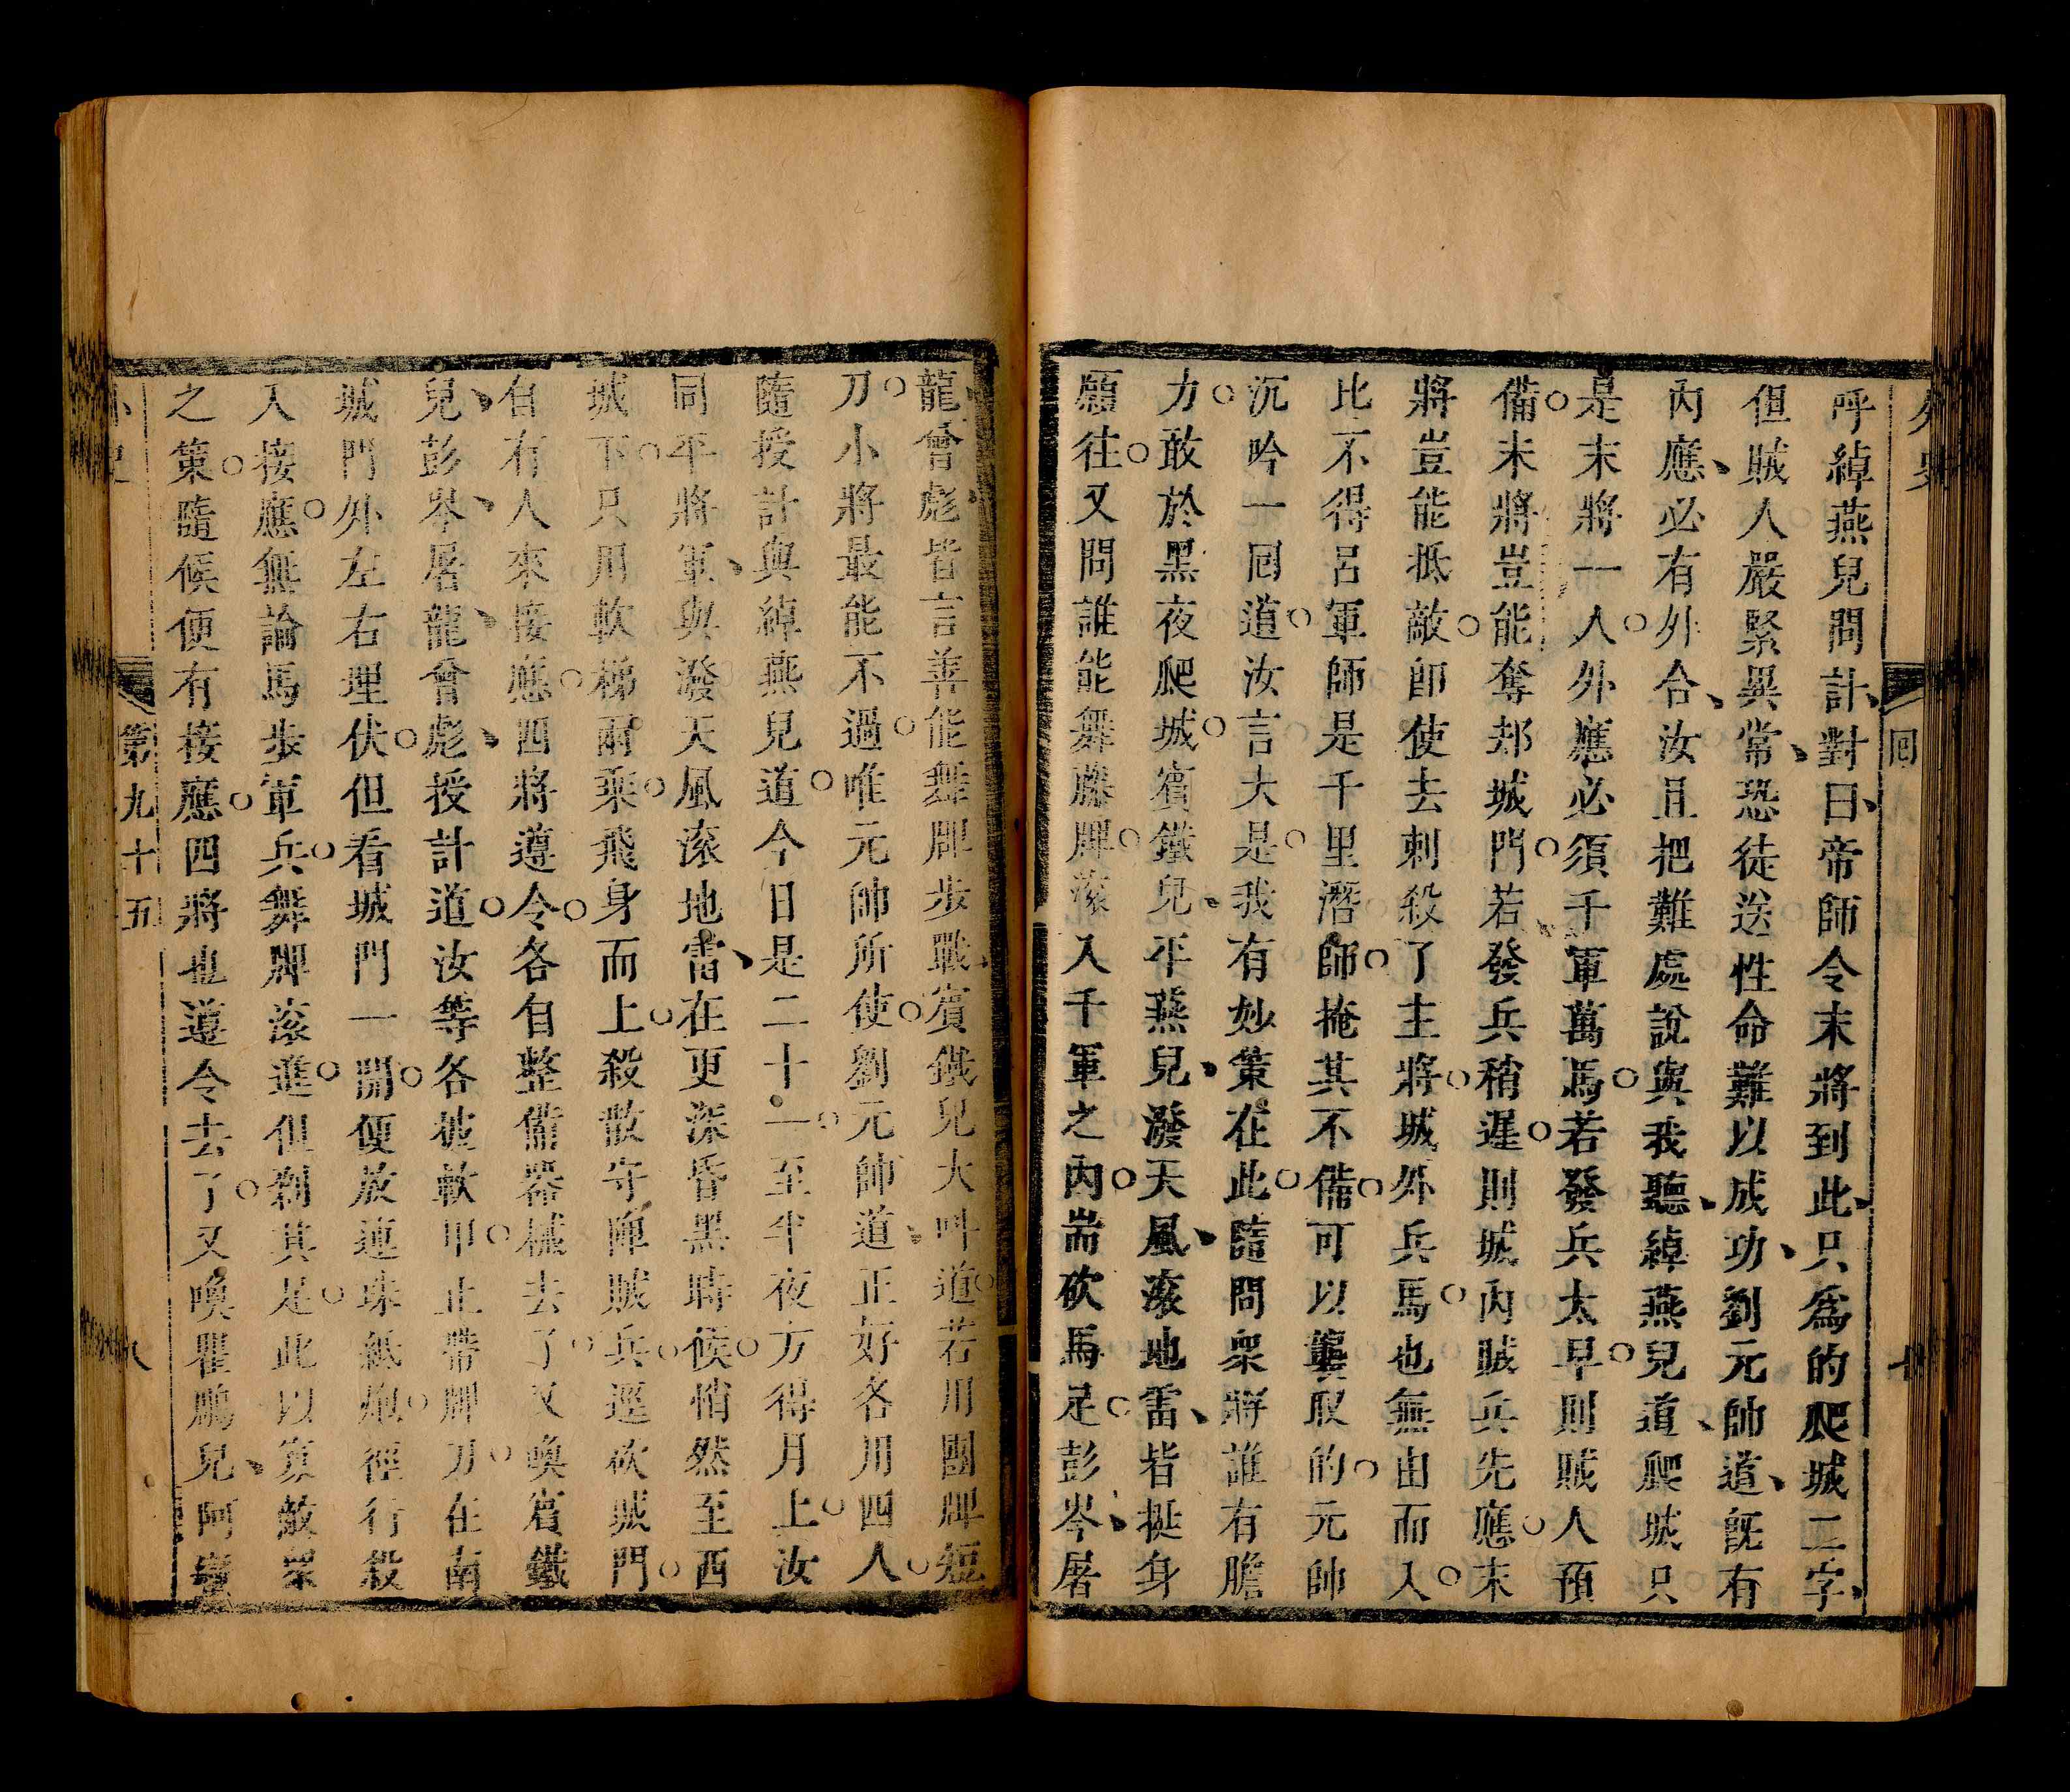 外史
回
呼綽燕兒問計、對曰、帝師令末將到此、只爲的爬城二字、
但賊人嚴緊異常、恐徒送性命難以成功、劉元帥道、旣有
內應、必有外合、汝且把難處說與我聽、綽燕兒道、爬城只
是末將一人。外應必須千軍萬馬。若發兵太早。則賊人預
備。末將豈能奪郏城門。若發兵稍遲。則城內賊兵先應。末
將豈能抵敵。卽使去刺殺了主將。城外兵馬。也無由而入。
比不得呂軍師是千里潛師。掩其不備。可以龔取的。元帥
沉吟一回道。汝言大是。我有妙策在此。隨問眾將誰有膽
力。敢於黑夜爬城。賓鐵兒、平燕兒、潑天風、滚地雷、皆挺身
願往。又問誰能舞藤牌。滚入千軍之內。耑砍馬足。彭岑、屠
龍、曾彪、皆言善能舞牌步戰、賓鐵兒大呌道。若用團牌短
刀。小將最能。不過。唯元帥所使。劉元帥道、正好各用四人。
隨授計與綽燕兒道。今日是二十一。至半夜方得月上。汝
同平將軍、與潑天風滚地雷、在更深昏黑時候。悄然至西
城下。只用軟梯兩乘。飛身而上。殺散守陣賊兵。逕砍城門。
自有人來接應。四將遵令。各自整備器械去了。又喚賓鐵
兒、彭岑、屠龍、曾彪、授計道。汝等各披軟甲。止帶牌刀。在南
城門外左右理伏。但看城門一開。便放連珠紙炮。徑行殺
入接應。無論馬步軍兵。舞牌滚進。但剃其足。此以寡敵眾
之策。隨候便有接應。四將也遵令去了。又喚瞿鵬兒、阿蠻
外史
第九十五
八